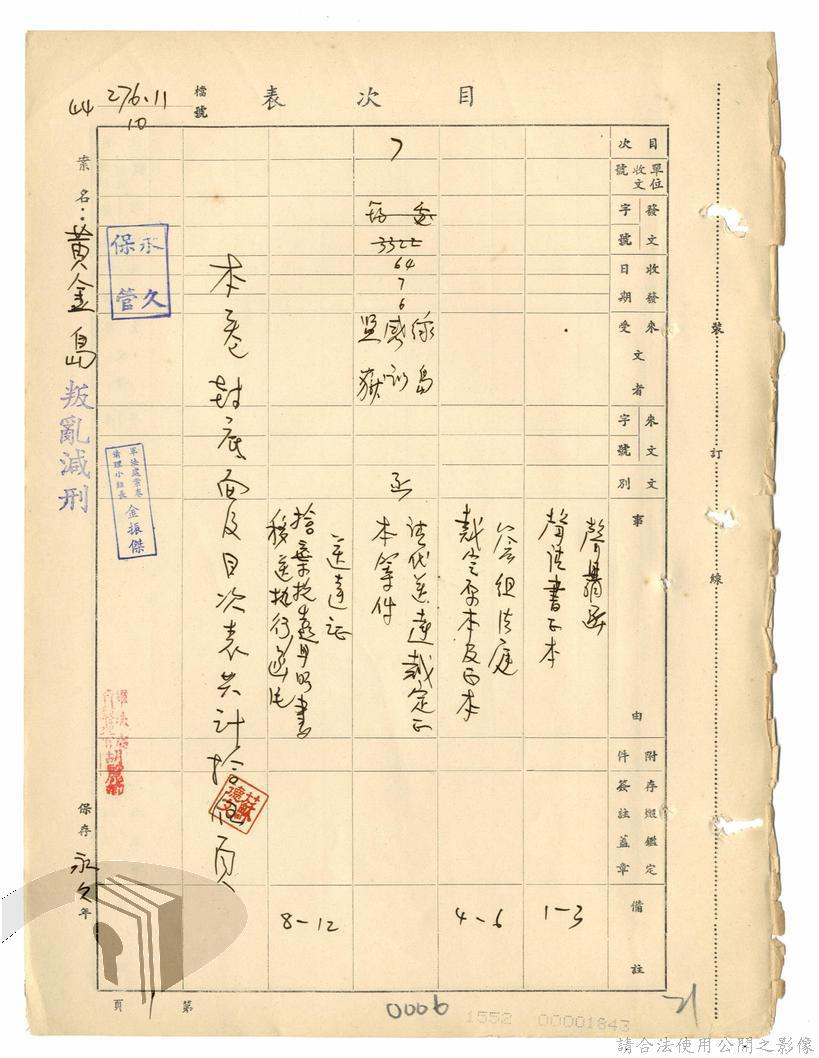 目次表
檔號
276.11
10
44
目次
單位收文號
發文字號
收發日期
來文受文者
來文字號
文別
事由
附件
存燬鑑定簽註蓋章
備註
聲請書正本
1-3
合組法庭
裁定原本及正本
4-6
7
3322
64
7
6
綠島
感訓
監獄
函
請代送達裁定正
本等件
送達證
捨棄抗告聲明書
移送執行函
8-12
本卷封底面及目次表共計拾伍頁
蘇德文
案名:黃金島
叛亂減刑
永久
保管
軍法處案卷
清理小組長
金振傑
保存永久年
裝訂線
第
頁
0006
21
1552 00001843
請合法使用公開之影像